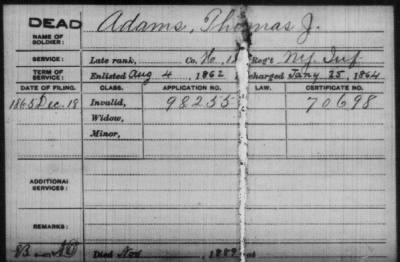 DEAD
NAME OF SOLDIER: Adams, Thomas J.
SERVICE: Late rank, Co. H, 18 Reg't N.J. Inf.
TERM OF SERVICE: Enlisted Aug 4, 1862 charged Jany 25, 1864
DATE OF FILING. CLASS. APPLICATION NO. LAW. CERTIFICATE NO.
1865 Dec. 18 Invalid, 98255 70698
Widow,
Minor,
ADDITIONAL SERVICES:
REMARKS:
Died Nov , 1889, at